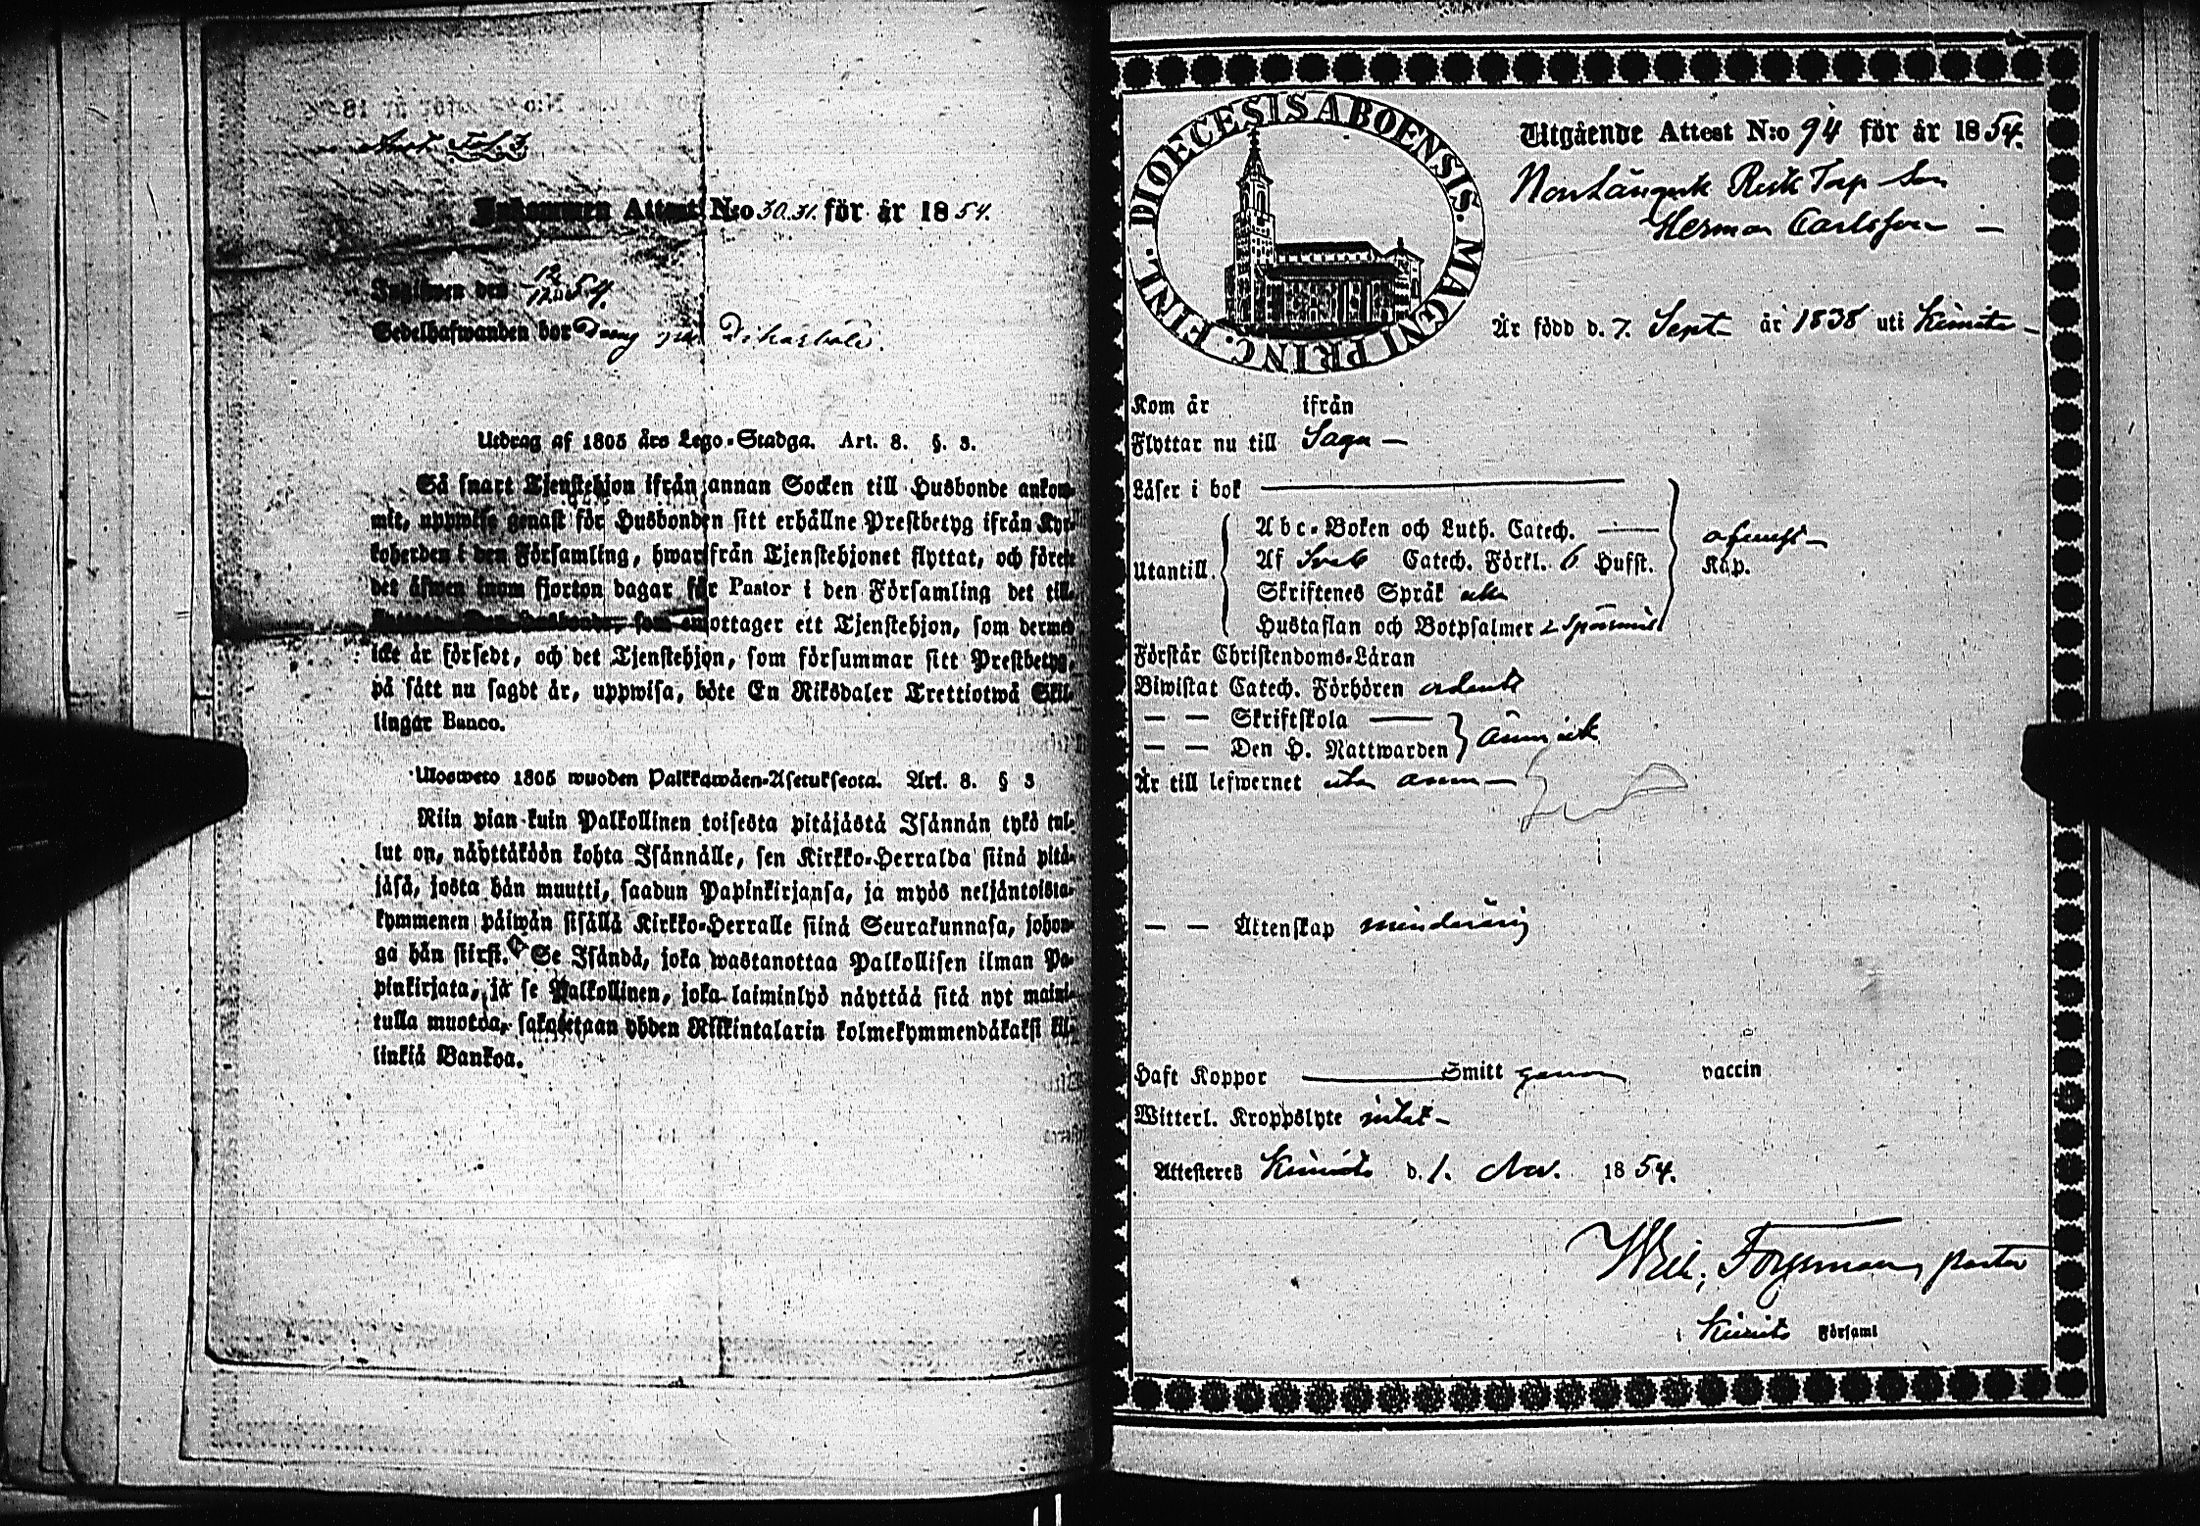 Inkommen Attest N:o 30.31. för år 1854.
Inskrifwen den 12/12 54.
Sedelhafwanden bor Dräng på
Utdrag af 1805 års Lego-Stadga. Art. 8. §. 3.
Så snart Tjenstehjon ifrån annan Socken till Husbonde ankom-
mit, uppwise genast för Husbonden sitt erhållne Prestbetyg ifrån Kyr-
koherden i den Församling, hwarifrån Tjenstehjonet flyttat, och förete
det äfwen inom fjorton dagar för Pastor i den Församling det till-
som emottager ett Tjenstehjon, som dermed
icke är försedt, och det Tjenstehjon, som försummar sitt Prestbetyg,
på sätt nu sagdt är, uppwisa, böte En Riksdaler Trettiotwå Skil-
lingar Banco.
Ulosweto 1805 wuoden Palkkawäen-Asetuksesta. Art. 8. § 3
Niin pian kuin Palkollinen toisesta pitäjästä Isännän tykö tul-
lut on, näyttäköön kohta Isännälle, sen Kirkko-Herralda siinä pitä-
jäsä, josta hän muutti, saadun Papinkirjansa, ja myös neljäntoista-
kymmenen päiwän sisällä Kirkko-Herralle siinä Seurakunnasa, johon-
ga hän siirsi. Se Isändä, joka wastanottaa Palkollisen ilman Pa-
pinkirjata, ja se Palkollinen, joka laiminlyö näyttää sitä nyt maini-
tulla muotoa, sakotetaan yhden Riikintalarin kolmekymmendäkaksi kil-
linkiä Bankoa.
DIOECESIS ABOENSIS. MAGNI PRINC. FINL.
Utgående Attest N:o 94 för år 1854.
Torp Son
Herman Carlsson
Är född d. 7. Sept år 1838 uti Kimito
Kom år ifrån
Flyttar nu till Sagu
Läser i bok
Abc-Boken och Luth. Catech.
Utantill. Af Sveb Catech. Förkl. 6 Hufst. Kap.
Skriftenes Språk
Hustaflan och Botpsalmer
Förstår Christendoms-Läran
Biwistat Catech. Förhören
— — Skriftskola
— — Den H. Nattwarden ännu ick
Är till lefwernet utan anm
— — Äktenskap minderårig
Haft Koppor Smitt genom vaccin
Witterl. Kroppslyte intet
Attesteras Kimito d. 1. Nov. 1854.
Wilh. Forsman, pastor
i Kimito Församl